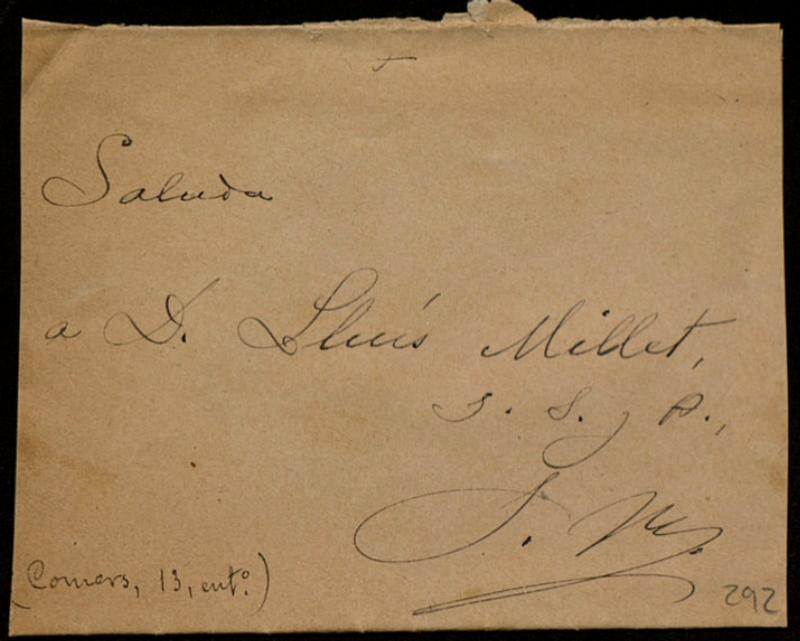 Saluda
a D. Lluís Millet,
s. s. y A.,
J. M.
(Comers, 13, entº.)
292